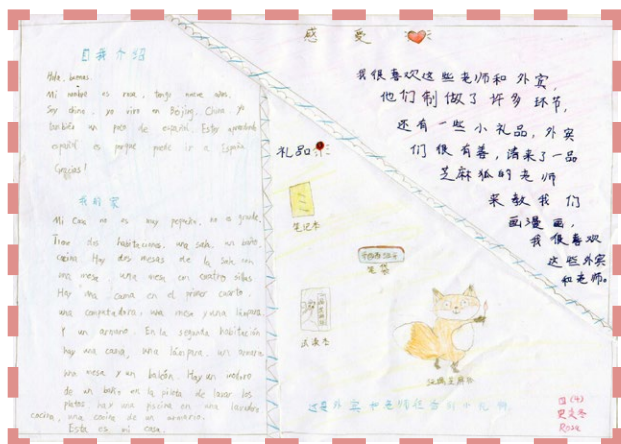 自我介绍
Hola, buenas
Mi nombre es rosa, tengo nueve años,
Soy china, yo vivo en Beijing, China, yo
también un poco de español. Estoy aprendendo
español es porque puede ir a España.
Gracias!
我的家
Mi Casa no es muy pequeña, no es grande,
Tiene dos habitaciones, una sala, un baño,
cocina. Hay dos mesas de la sala con
una mesa, una mesa con cuatro sillas
Hay una cama en el primer cuarto,
una computadora, una mesa y una lámpara
Y un armario. En la segunda habitación
hay una cama, una lámpara, un armario
una mesa y un balcón. Hay un inodoro
de un baño en la pileta de lavar los
platos, hay una piscina en una lavadora
cocina, una cocina de un armario.
Esta es mi casa.
感受
我很喜欢这些老师和外宾,
他们制做了许多环节,
还有一些小礼品,外宾
们很有善,请来了一品
芝麻狐的老师
来教我们
画漫画,
我很喜欢
这些外宾
和老师。
礼品
笔记本
笔袋
这是外宾和老师
四(4)
Rosa